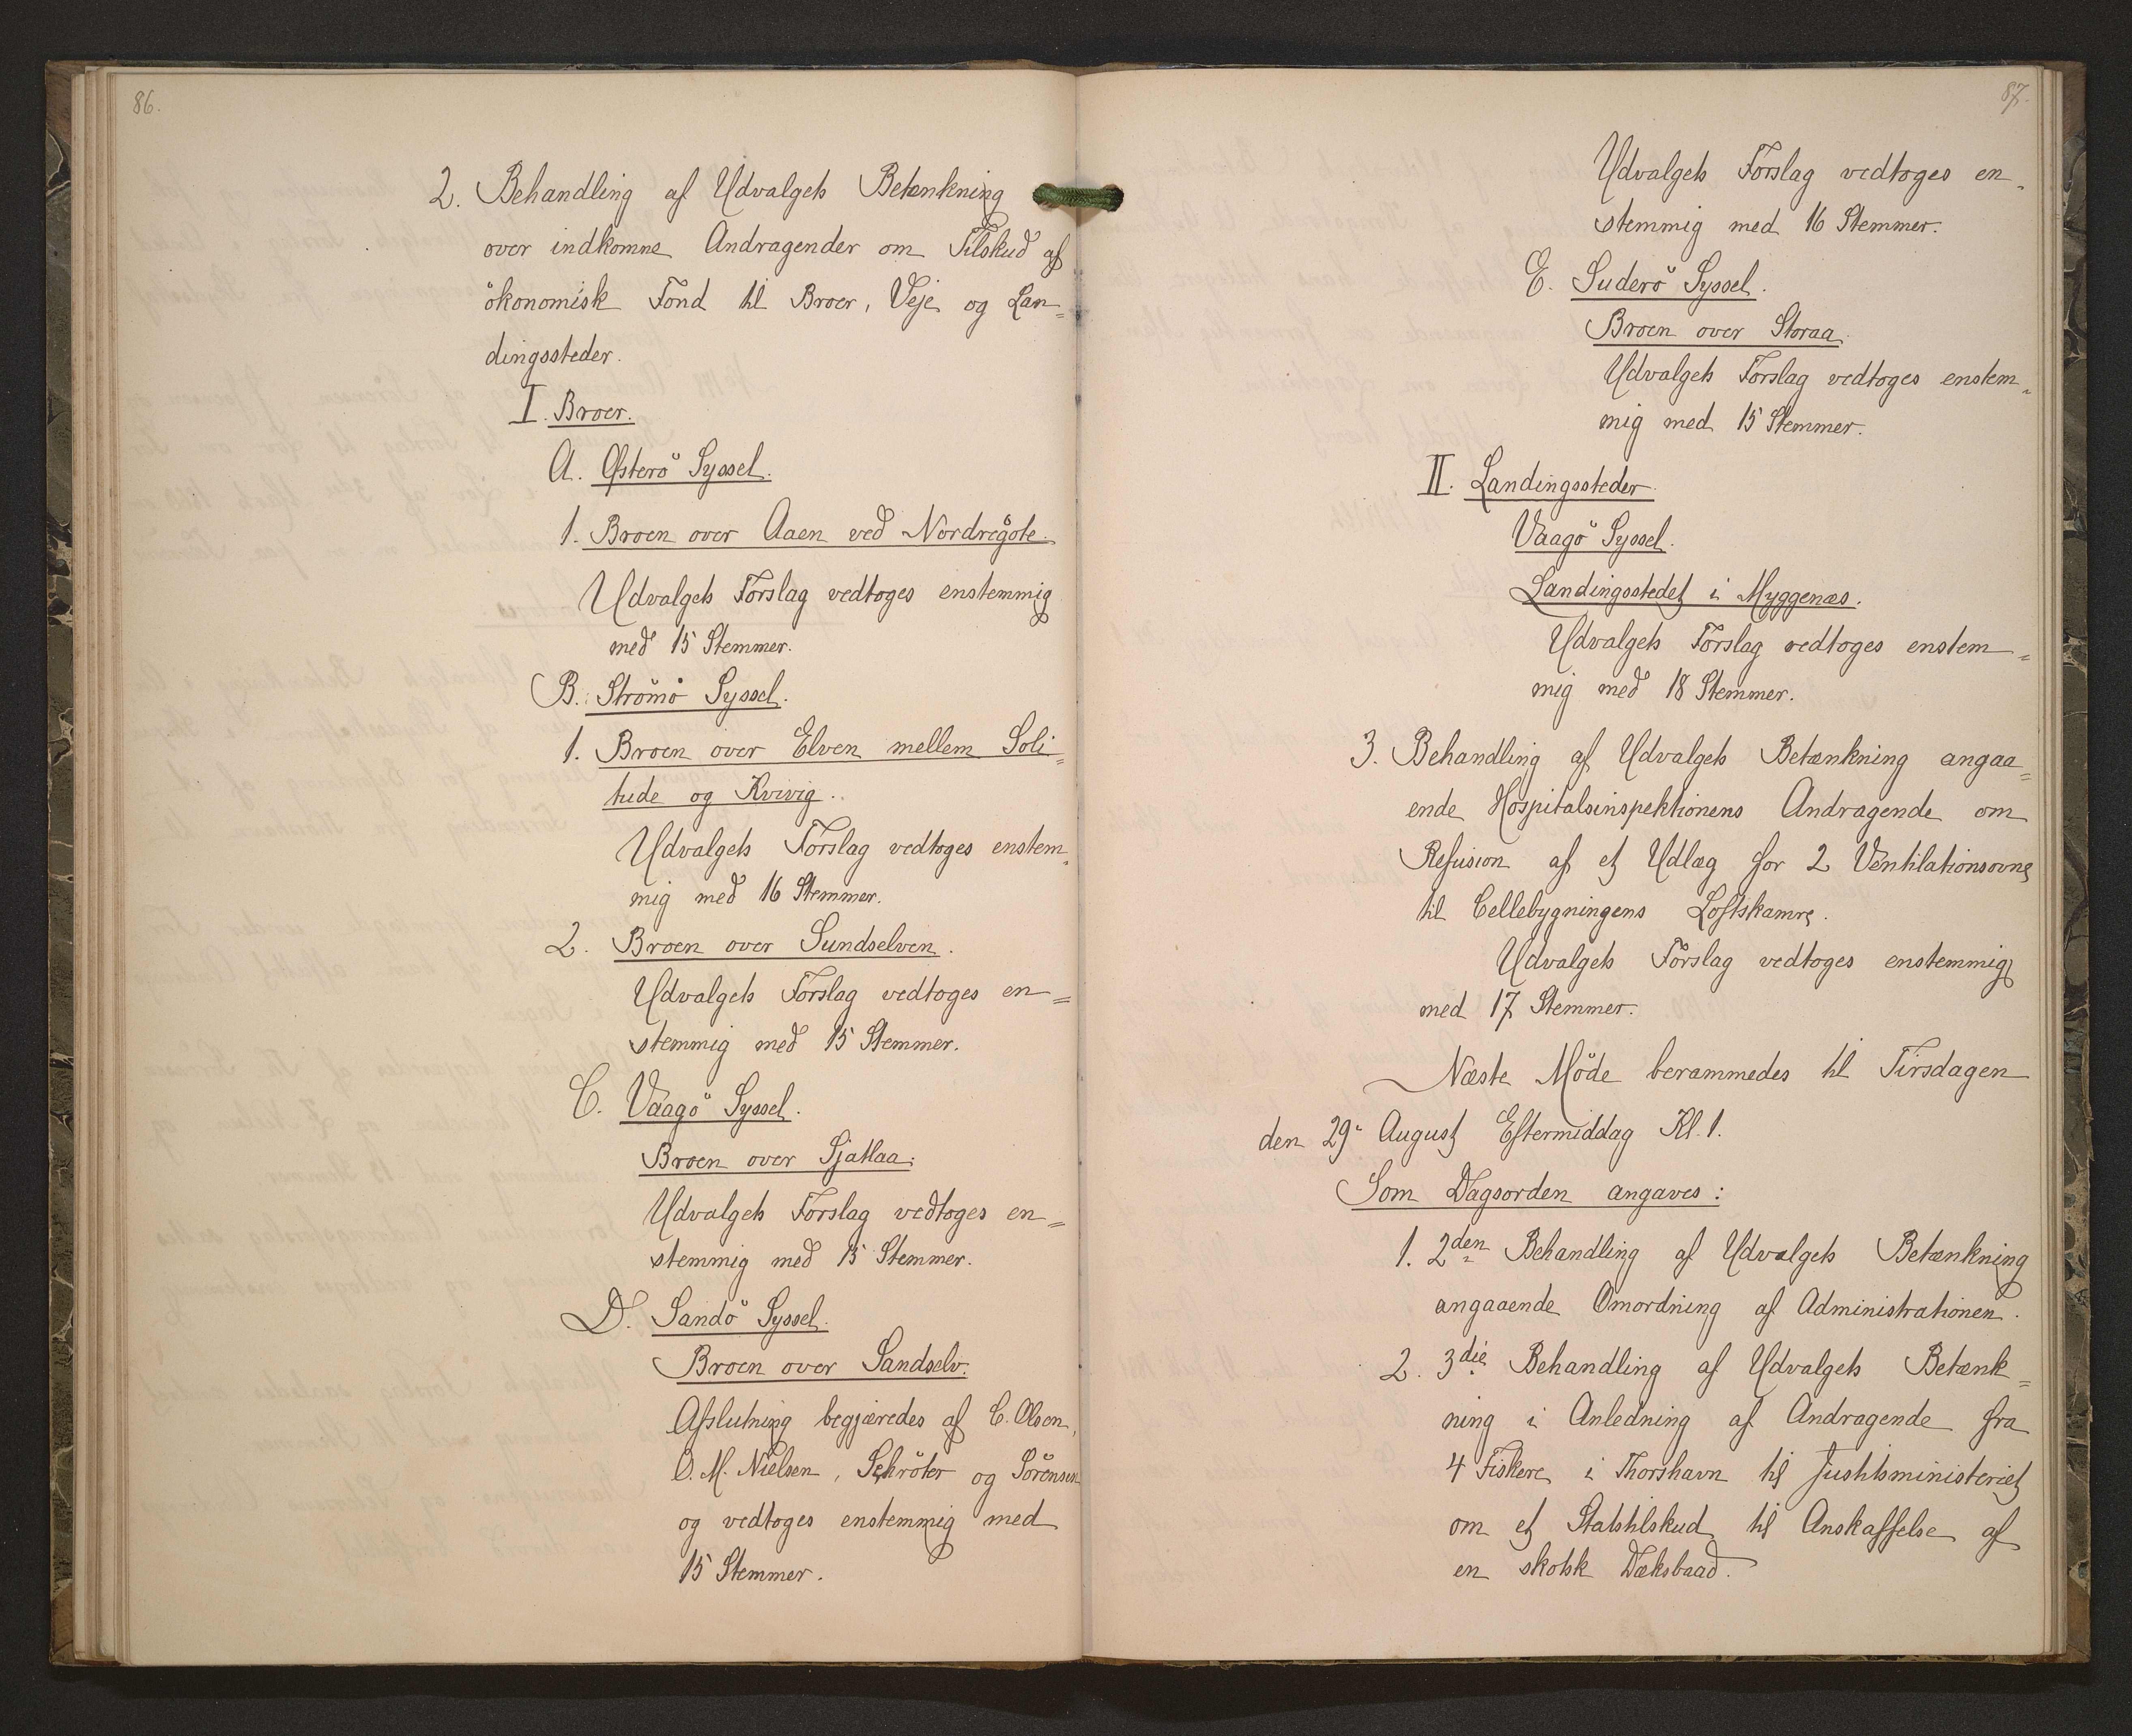 86.
2. Behandling af Udvalgets Betænkning
over indkomne Andragender om Tilskud af
økonomisk Fond til Broer, Veje og Lan=
dingssteder.
I. Broer.
A. Østerö Syssel.
1. Broen over Aaen ved Nordregöte.
Udvalgets Forslag vedtoges enstemmig
med 15 Stemmer.
B. Strömö Syssel.
1. Broen over Elven mellem Soli=
tude og Kvivig.
Udvalgets Forslag vedtoges enstem=
mig med 16 Stemmer.
2. Broen over Sundselven.
Udvalgets Forslag vedtoges en=
stemmig med 15 Stemmer.
C. Vaagö Syssel.
Broen over Sjatlaa.
Udvalgets Forslag vedtoges en=
stemmig med 15 Stemmer.
D. Sandö Syssel.
Broen over Sandselv.
Afslutning begjæredes af C. Olsen,
O. M. Nielsen, Schröter og Sörensen
og vedtoges enstemmig med
15 Stemmer.
87.
Udvalgets Forslag vedtoges en=
stemmig med 16 Stemmer.
E. Suderö Syssel.
Broen over Storaa.
Udvalgets Forslag vedtoges enstem=
mig med 15 Stemmer.
II. Landingssteder.
Vaagö Syssel.
Landingsstedet i Myggenæs.
Udvalgets Forslag vedtoges enstem=
mig med 18 Stemmer.
3. Behandling af Udvalgets Betænkning angaa=
ende Hospitalsinspektionens Andragende om
Refusion af et Udlæg for 2 Ventilationsovne
til Cellebygningens Loftskamre.
Udvalgets Forslag vedtoges enstemmig
med 17 Stemmer.
Næste Möde berammedes til Tirsdagen
den 29. August Eftermiddag Kl. 1.
Som Dagsorden angaves:
1. 2den Behandling af Udvalgets Betænkning
angaaende Omordning af Administrationen.
2. 3die Behandling af Udvalgets Betænk=
ning i Anledning af Andragende fra
4 Fiskere i Thorshavn til Justitsministeriet
om et Statstilskud til Anskaffelse af
en skotsk Dæksbaad.